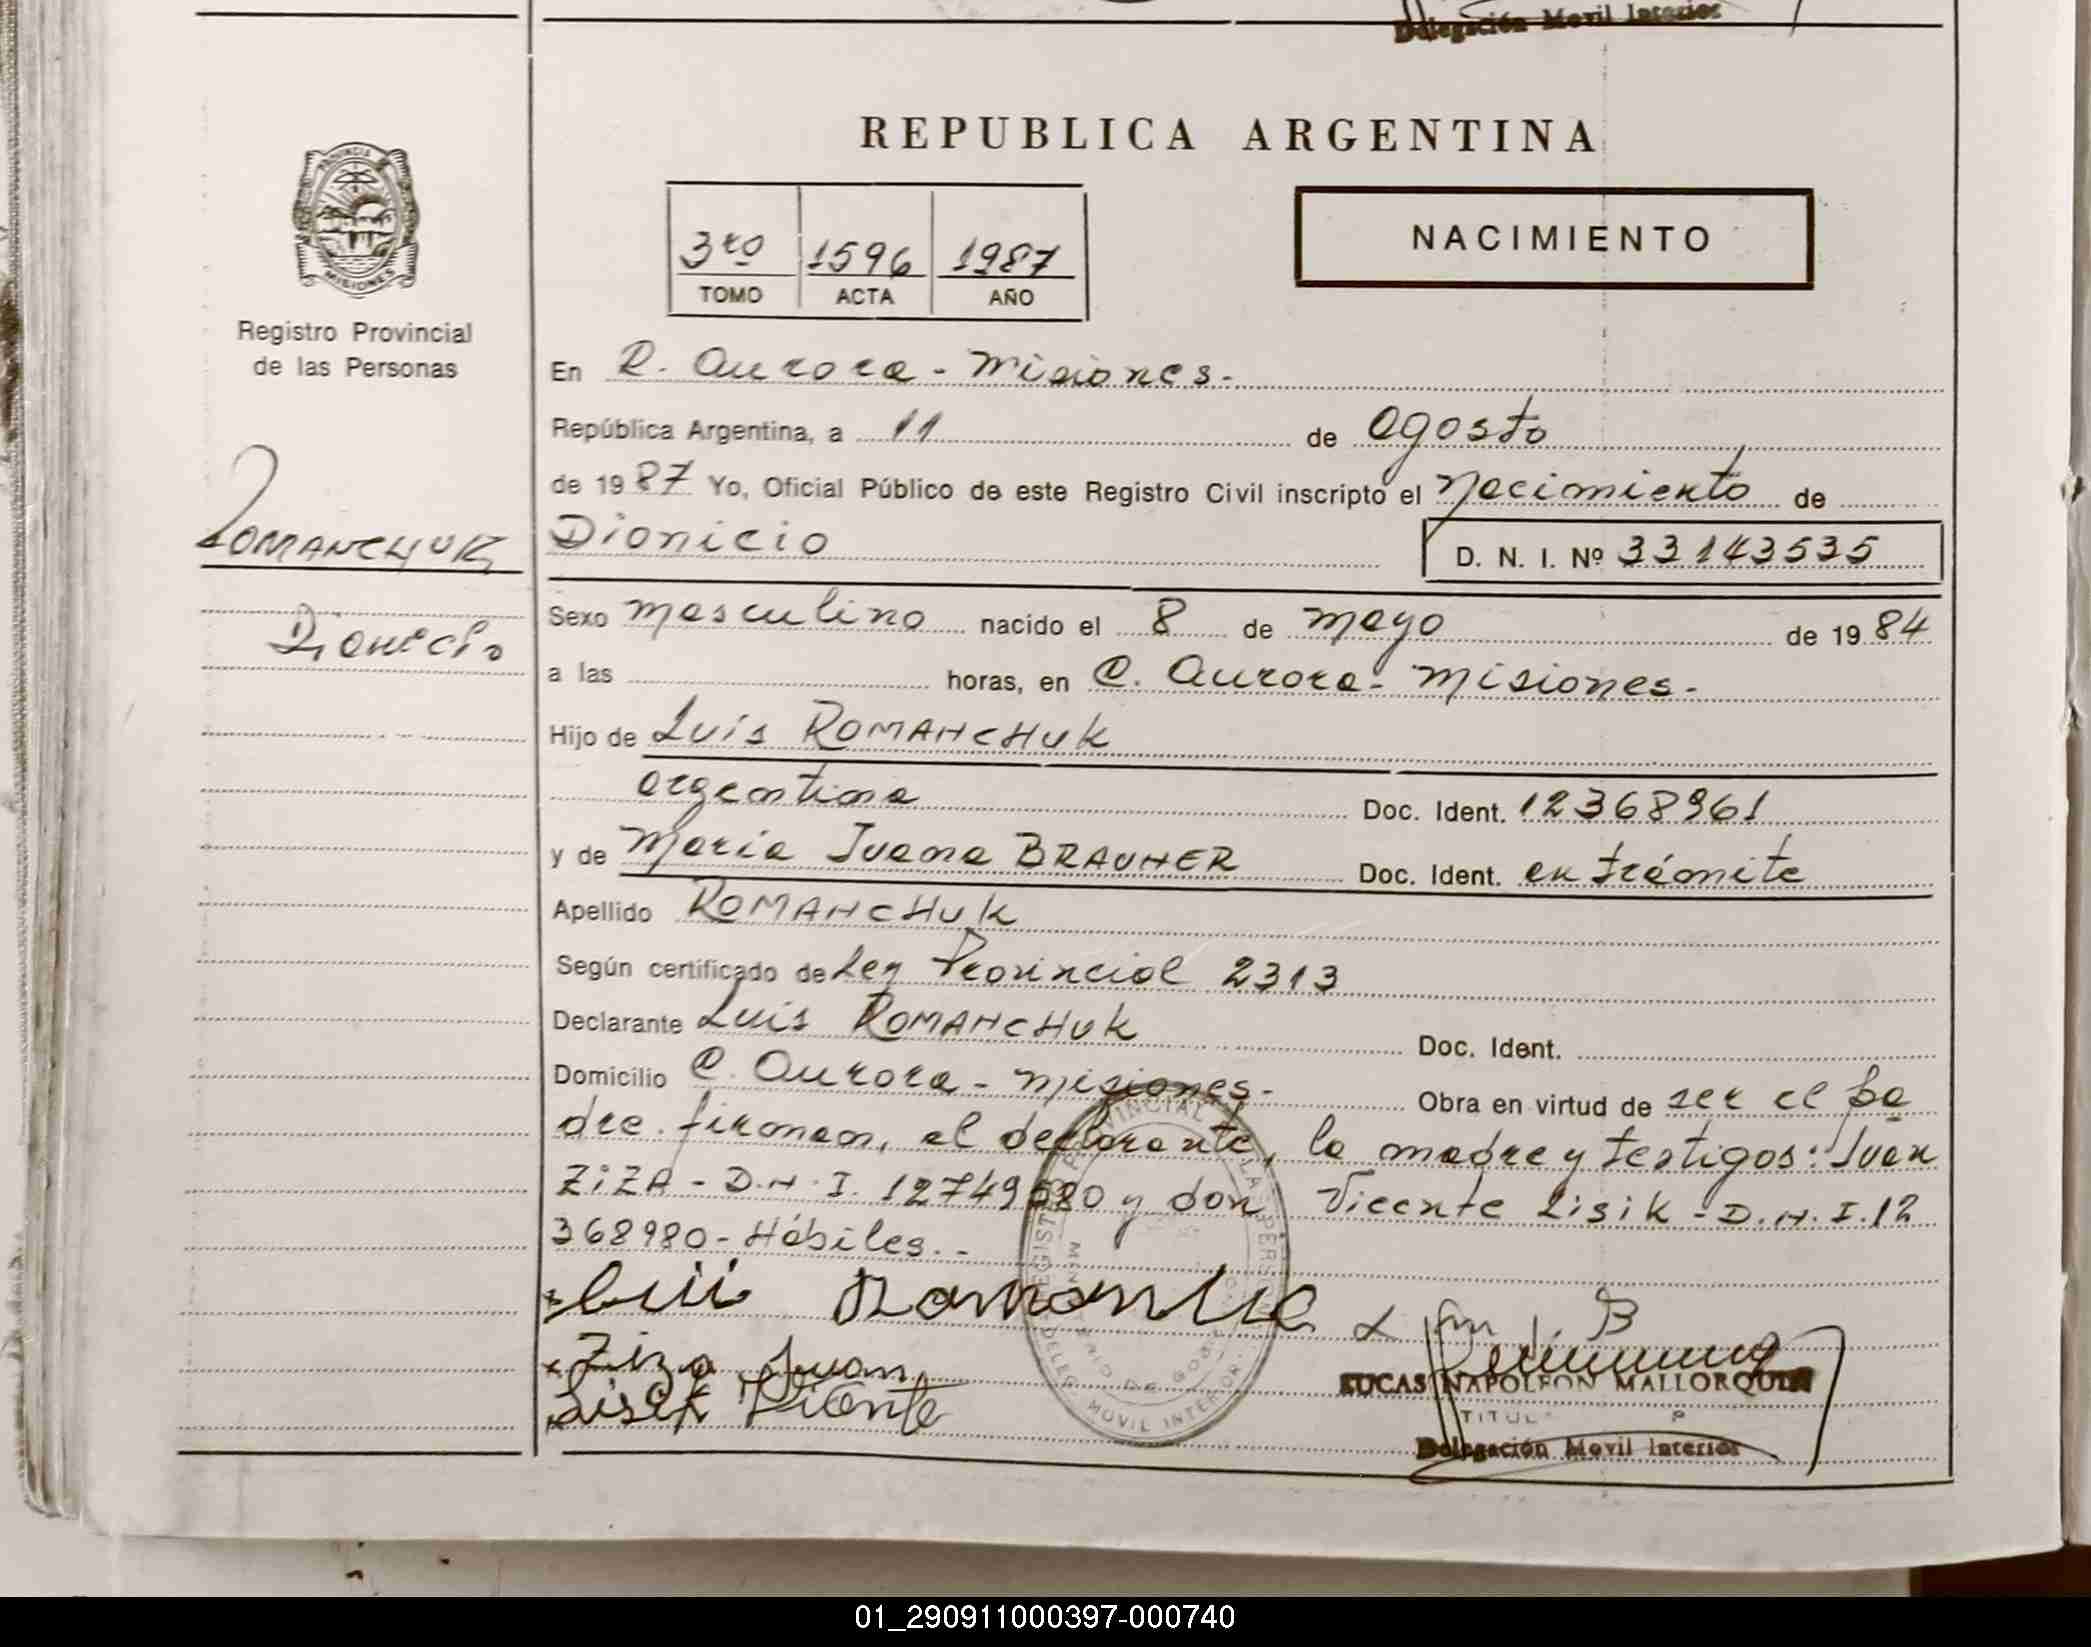 Delegación Movil Interior
REPUBLICA ARGENTINA
PROVINCIA DE
MISIONES
3ro 1596 1987
TOMO ACTA AÑO
NACIMIENTO
Registro Provincial
de las Personas
En R. Aurora - Misiones.-
República Argentina, a 11 de Agosto
de 1987 Yo, Oficial Público de este Registro Civil inscripto el Nacimiento de
ROMANCHUK
Dionicio
D. N. I. Nº 33143535
Dionicio
Sexo masculino nacido el 8 de mayo de 1984
a las horas, en C. Aurora - Misiones.-
Hijo de Luis ROMANCHUK
argentina Doc. Ident. 12368961
y de María Juana BRAUNER Doc. Ident. en trámite
Apellido ROMANCHUK
Según certificado de Ley Provincial 2313
Declarante Luis ROMANCHUK Doc. Ident.
Domicilio C. Aurora - Misiones.- Obra en virtud de ser el pa
dre. firman, el declarante, la madre y testigos: Juan
ZIZA - D.N.I. 12749580 y don Vicente Lisik - D.N.I. 12
368980 - Hábiles.-
Luis
Ziza Juan
Lisik Vicente
LUCAS NAPOLEON MALLORQUIN
Delegación Movil Interior
01_290911000397-000740